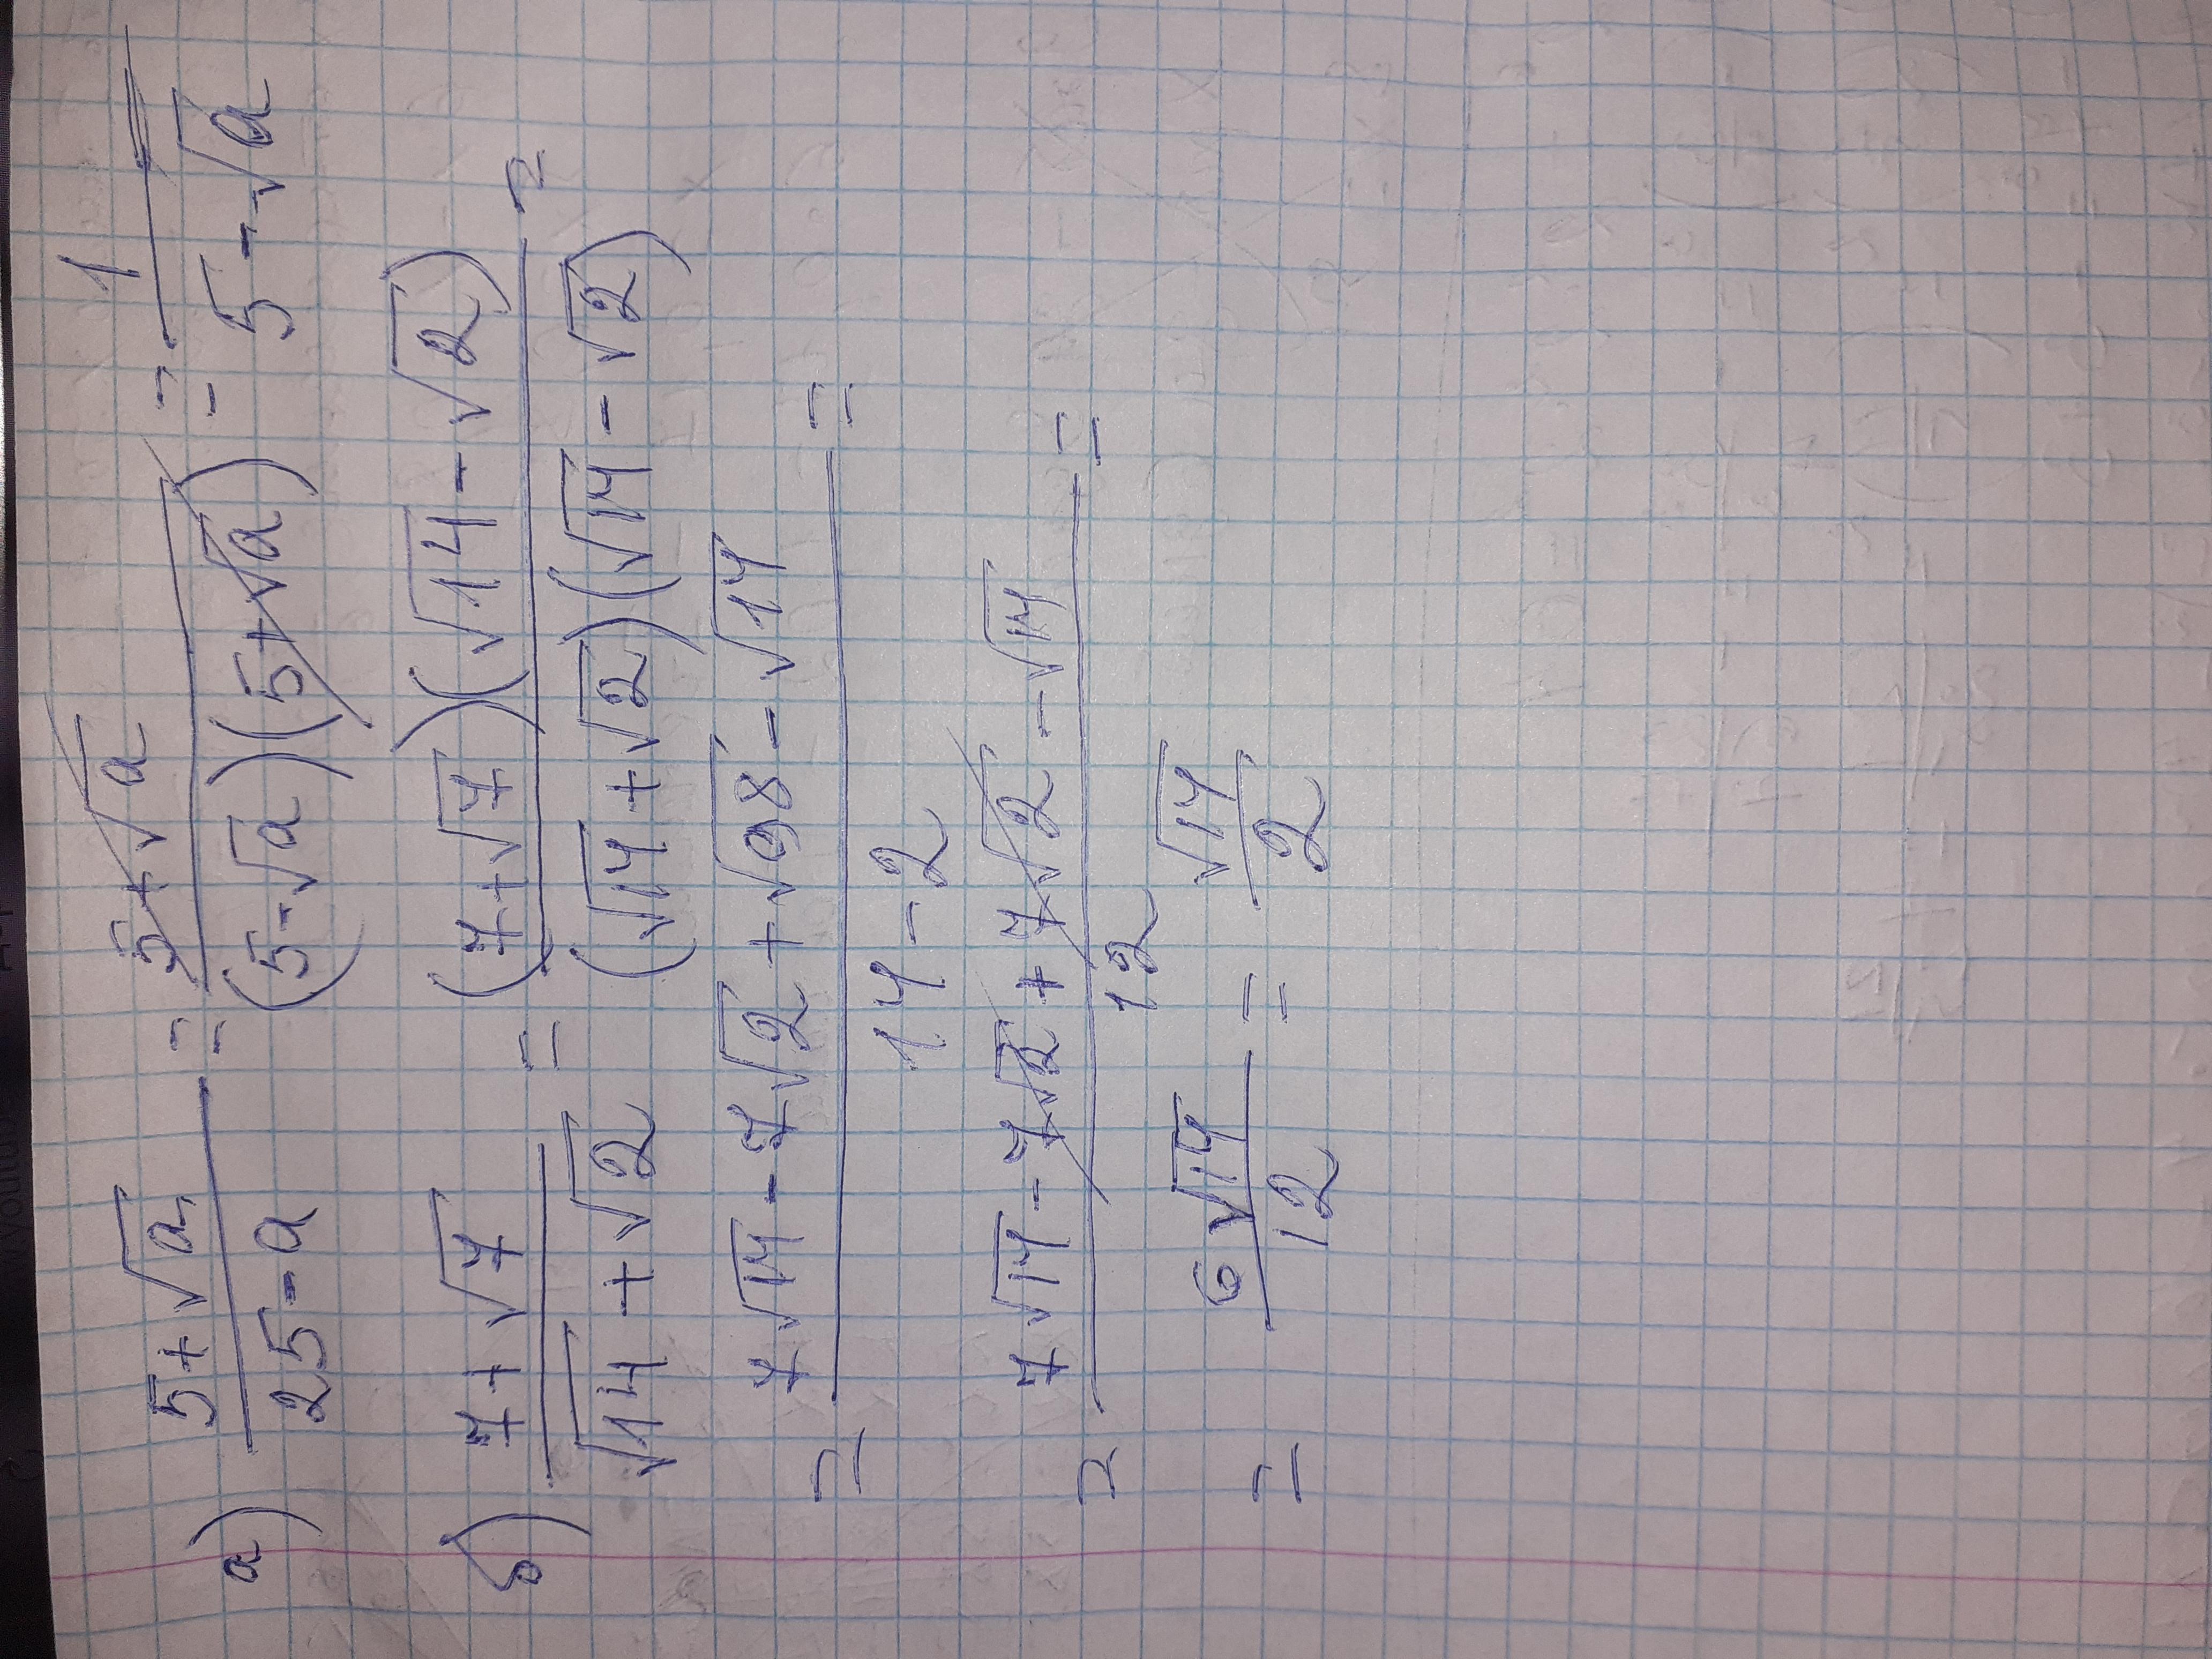 а) (5+√a)/(25-a) = (5+√a)/((5-√a)(5+√a)) = 1/(5-√a)
б) (7+√7)/(√14+√2) = ((7+√7)(√14-√2))/((√14+√2)(√14-√2)) =
= (7√14-7√2+√98-√14)/(14-2) =
= (7√14-7√2+7√2-√14)/12 =
= 6√14/12 = √14/2